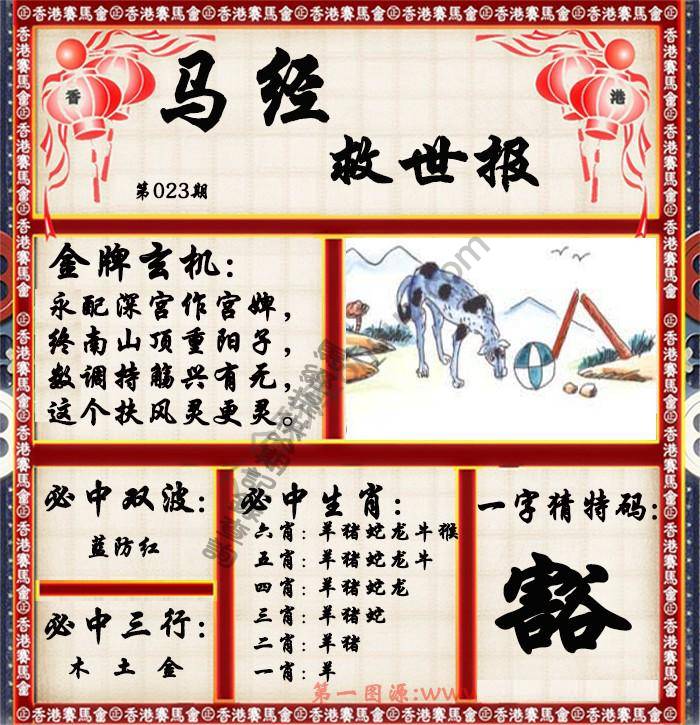 香港賽馬會
香
港
马经
救世报
第023期
金牌玄机：
永配深宫作宫婢，
终南山顶重阳子，
数调持筋兴有无，
这个扶风灵更灵。
必中双波：
蓝防红
必中三行：
木 土 金
必中生肖：
六肖：羊猪蛇龙牛猴
五肖：羊猪蛇龙牛
四肖：羊猪蛇龙
三肖：羊猪蛇
二肖：羊猪
一肖：羊
一字猜特码：
豁
第一图源:www